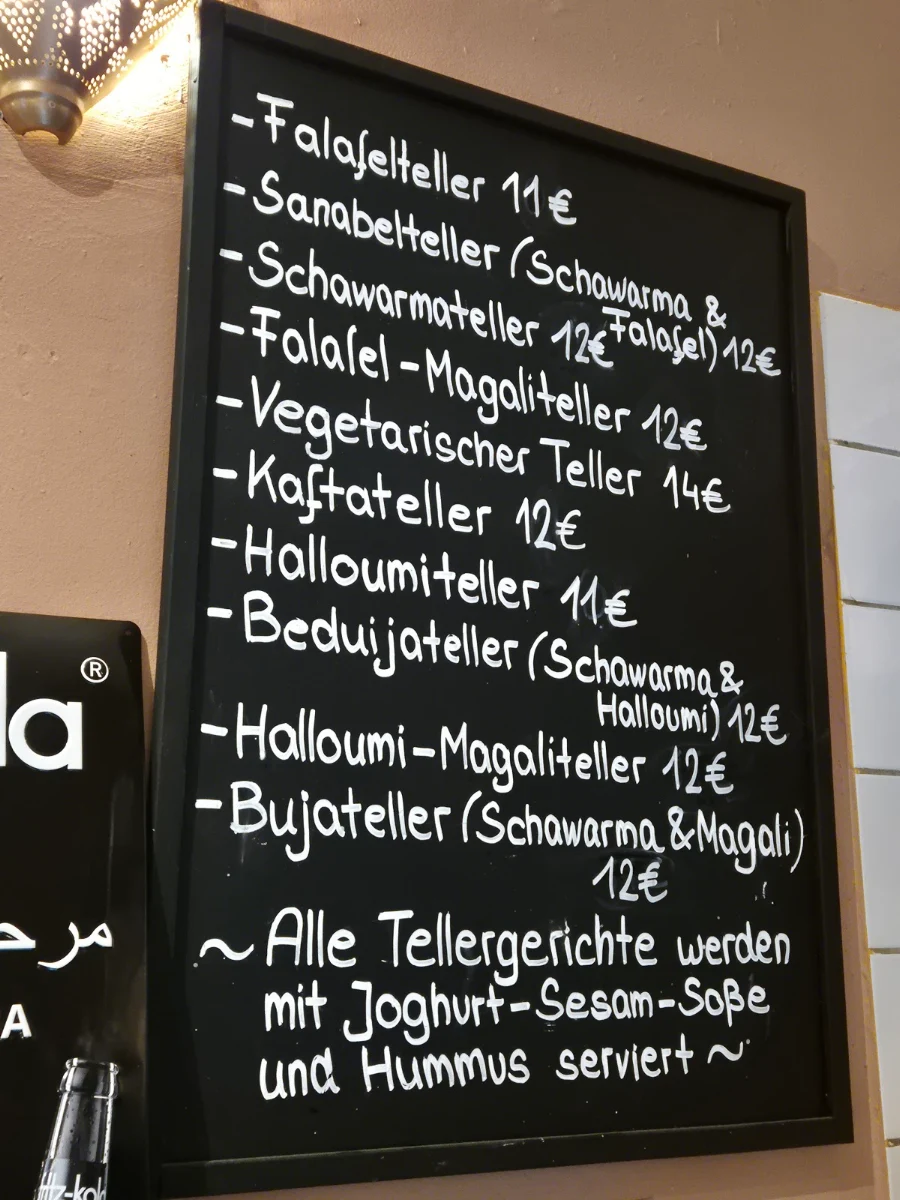 -Falafelteller 11€
-Sanabelteller (Schawarma &
Falafel) 12€
-Schawarmateller 12€
-Falafel-Magaliteller 12€
-Vegetarischer Teller 14€
-Kaftateller 12€
-Halloumiteller 11€
-Beduijateller (Schawarma &
Halloumi) 12€
-Halloumi-Magaliteller 12€
-Bujateller (Schawarma & Magali)
12€
~Alle Tellergerichte werden
mit Joghurt-Sesam-Soße
und Hummus serviert~
la®
مرح
A
fritz-kola